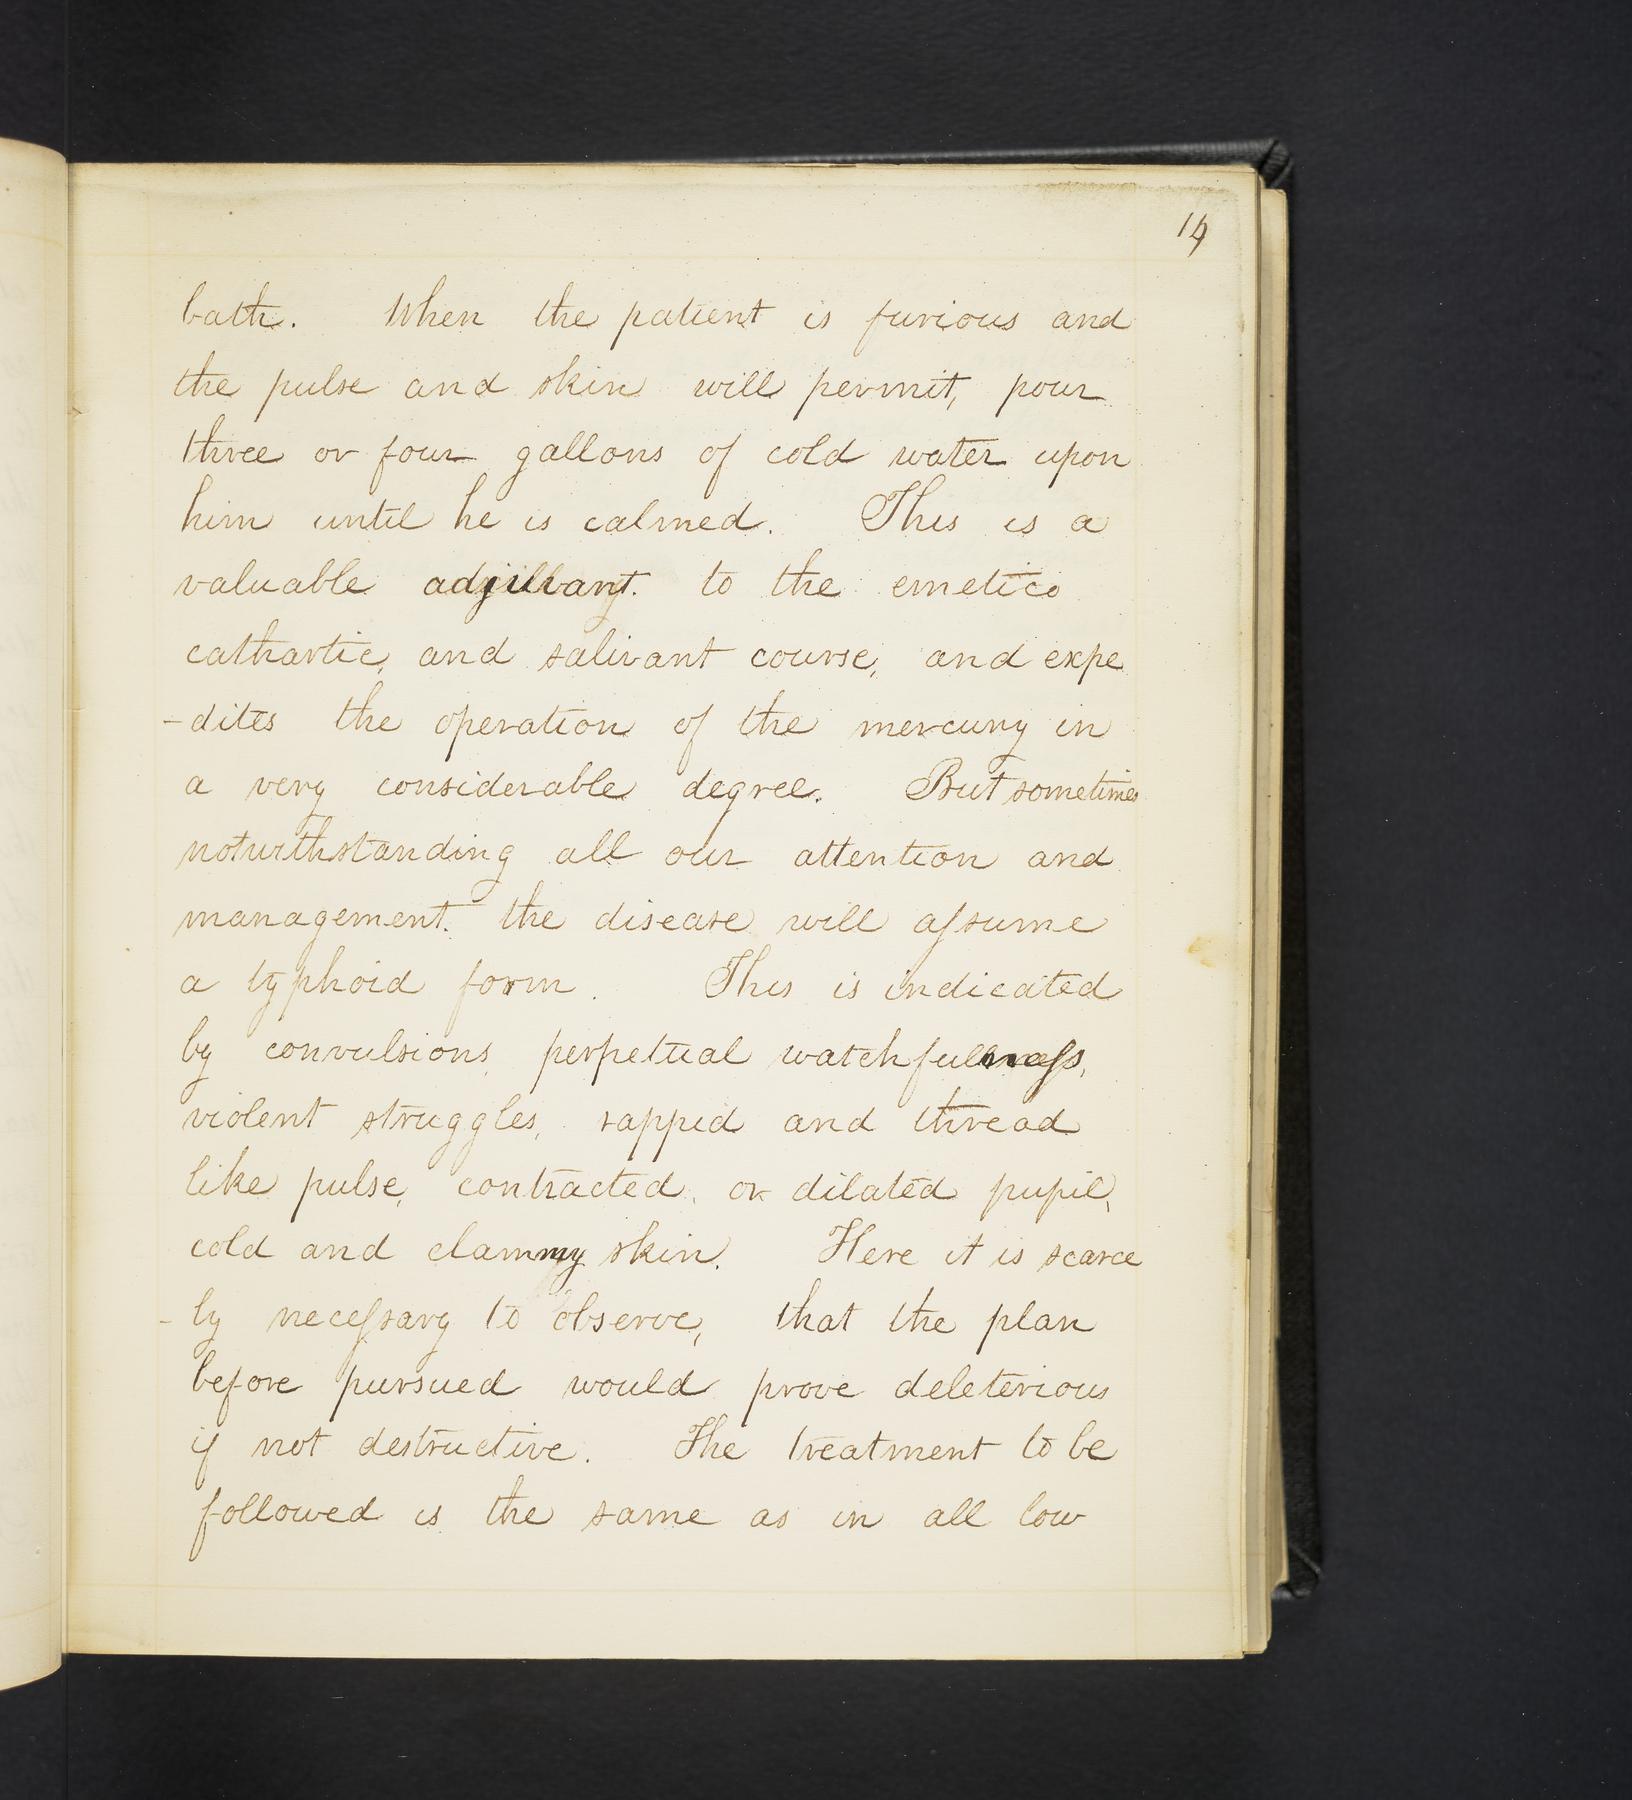 14
bath. When the patient is furious and
the pulse and skin will permit, pour
three or four gallons of cold water upon
him until he is calmed. This is a
valuable to the emetico
cathartic, and salivant course, and expe
-dites the operation of the mercury in
a very considerable degree. But sometimes
notwithstanding all our attention and
management. the disease will assume
a typhoid form. This is indicated
by convulsions, perpetual watchfullness,
violent struggles, rappid and thread
like pulse, contracted, or dilated pupil,
cold and clammy skin. Here it is scarce
-ly necessary to observe, that the plan
before pursued would prove deleterious
if not destructive. The treatment to be
followed is the same as in all low